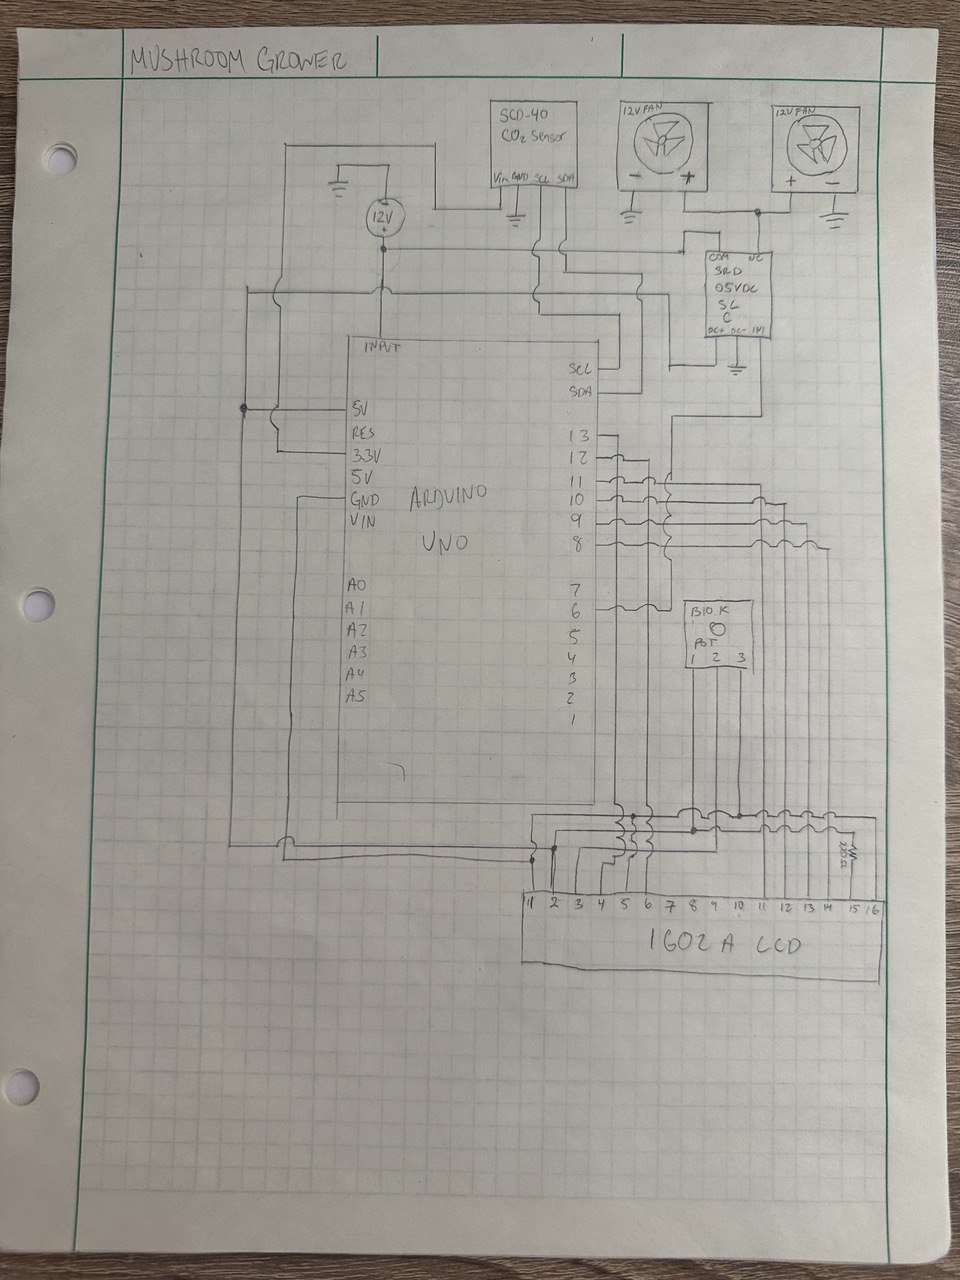 MUSHROOM GROWER
SCD-40
CO2 Sensor
Vin GND SCL SDA
12V FAN
- +
12V FAN
+ -
-
12V
+
COM NC
SRD
05VDC
SL
C
DC+ DC- IN1
INPUT
SCL
SDA
5V
RES
3.3V
5V
GND
VIN
ARDUINO
UNO
A0
A1
A2
A3
A4
A5
13
12
11
10
9
8
7
6
5
4
3
2
1
B10K
POT
1 2 3
220Ω
1 2 3 4 5 6 7 8 9 10 11 12 13 14 15 16
1602A LCD